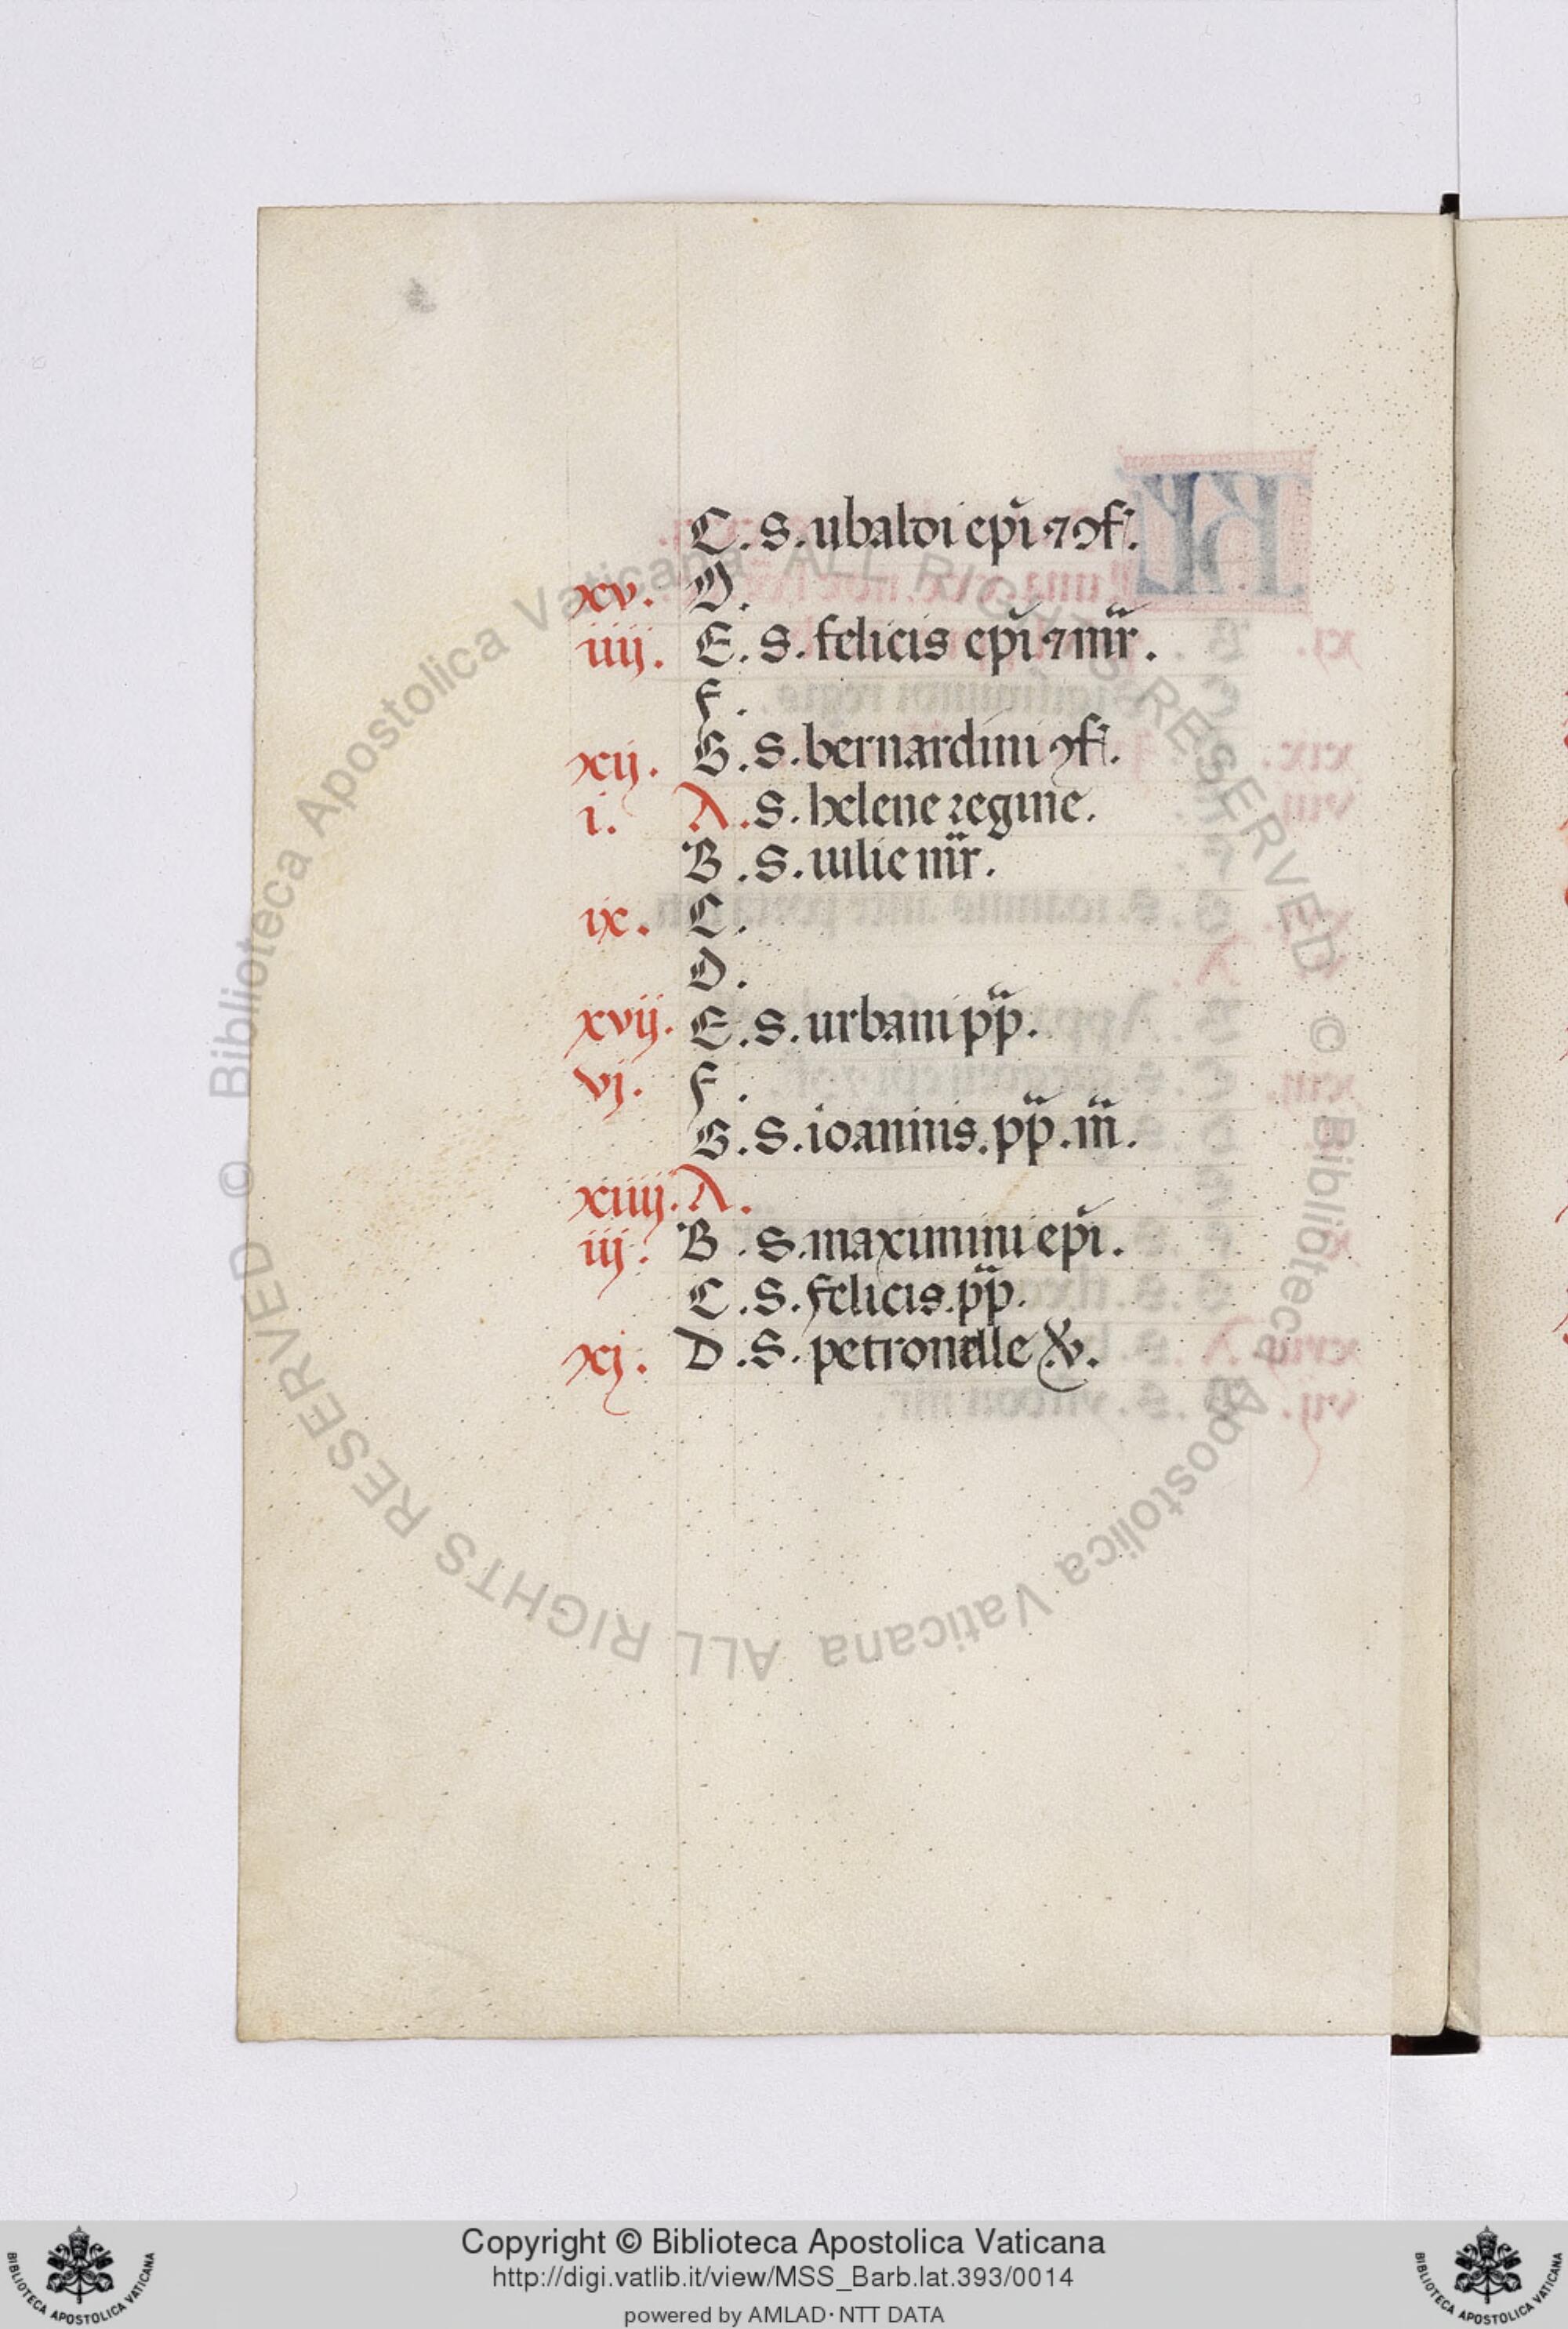 C. S. ubaldi epi̅ ⁊ ꝯf̅.
xv. D.
iiij. E. S. felicis epi̅ ⁊ mr̅.
F.
xij. G. S. bernardini ꝯf̅.
i. A. S. helene regine.
B. S. iulie mr̅.
ix. C.
D.
xvij. E. S. urbani pp̅.
vj. F.
G. S. ioannis. pp̅. m̅.
xiiij. A.
iij. B. S. maximini epi̅.
C. S. felicis. pp̅.
xj. D. S. petronelle
© Biblioteca Apostolica Vaticana ALL RIGHTS RESERVED
© Biblioteca Apostolica Vaticana ALL RIGHTS RESERVED
Copyright © Biblioteca Apostolica Vaticana
http://digi.vatlib.it/view/MSS_Barb.lat.393/0014
powered by AMLAD·NTT DATA
BIBLIOTECA APOSTOLICA VATICANA
BIBLIOTECA APOSTOLICA VATICANA